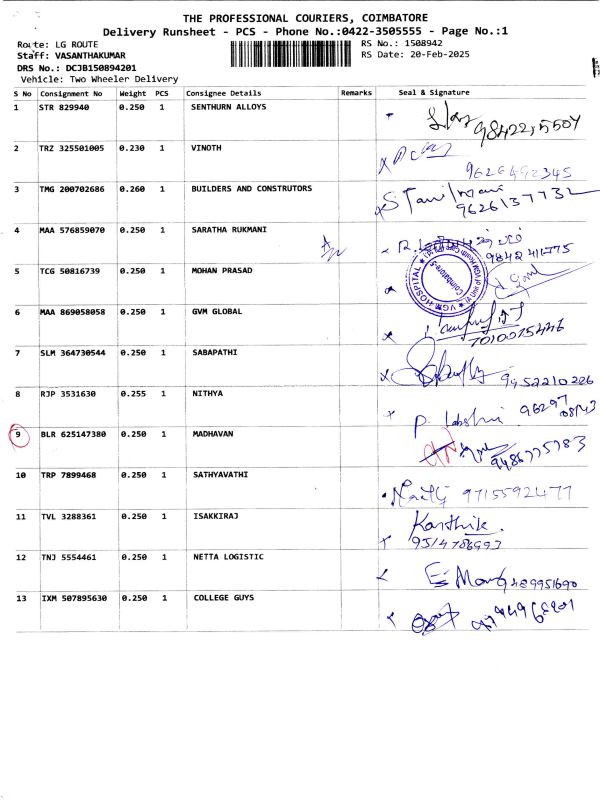 THE PROFESSIONAL COURIERS, COIMBATORE
Delivery Runsheet - PCS - Phone No.:0422-3505555 - Page No.:1
Route: LG ROUTE
RS No.: 1508942
Staff: VASANTHAKUMAR
RS Date: 20-Feb-2025
DRS No.: DCJB150894201
Vehicle: Two Wheeler Delivery
S No Consignment No Weight PCS Consignee Details Remarks Seal & Signature
1 STR 829940 0.250 1 SENTHURN ALLOYS
2 TRZ 325501005 0.230 1 VINOTH
9626492345
3 TMG 200702686 0.260 1 BUILDERS AND CONSTRUTORS
9626137732
4 MAA 576859070 0.250 1 SARATHA RUKMANI
5 TCG 50816739 0.250 1 MOHAN PRASAD
VGM HOSPITAL
6 MAA 869058058 0.250 1 GVM GLOBAL
7 SLM 364730544 0.250 1 SABAPATHI
9452210226
8 RJP 3531630 0.255 1 NITHYA
P.
9 BLR 625147380 0.250 1 MADHAVAN
9486775783
10 TRP 7899468 0.250 1 SATHYAVATHI
9715592477
11 TVL 3288361 0.250 1 ISAKKIRAJ
Karthik.
9514786993
12 TNJ 5554461 0.250 1 NETTA LOGISTIC
13 IXM 507895630 0.250 1 COLLEGE GUYS